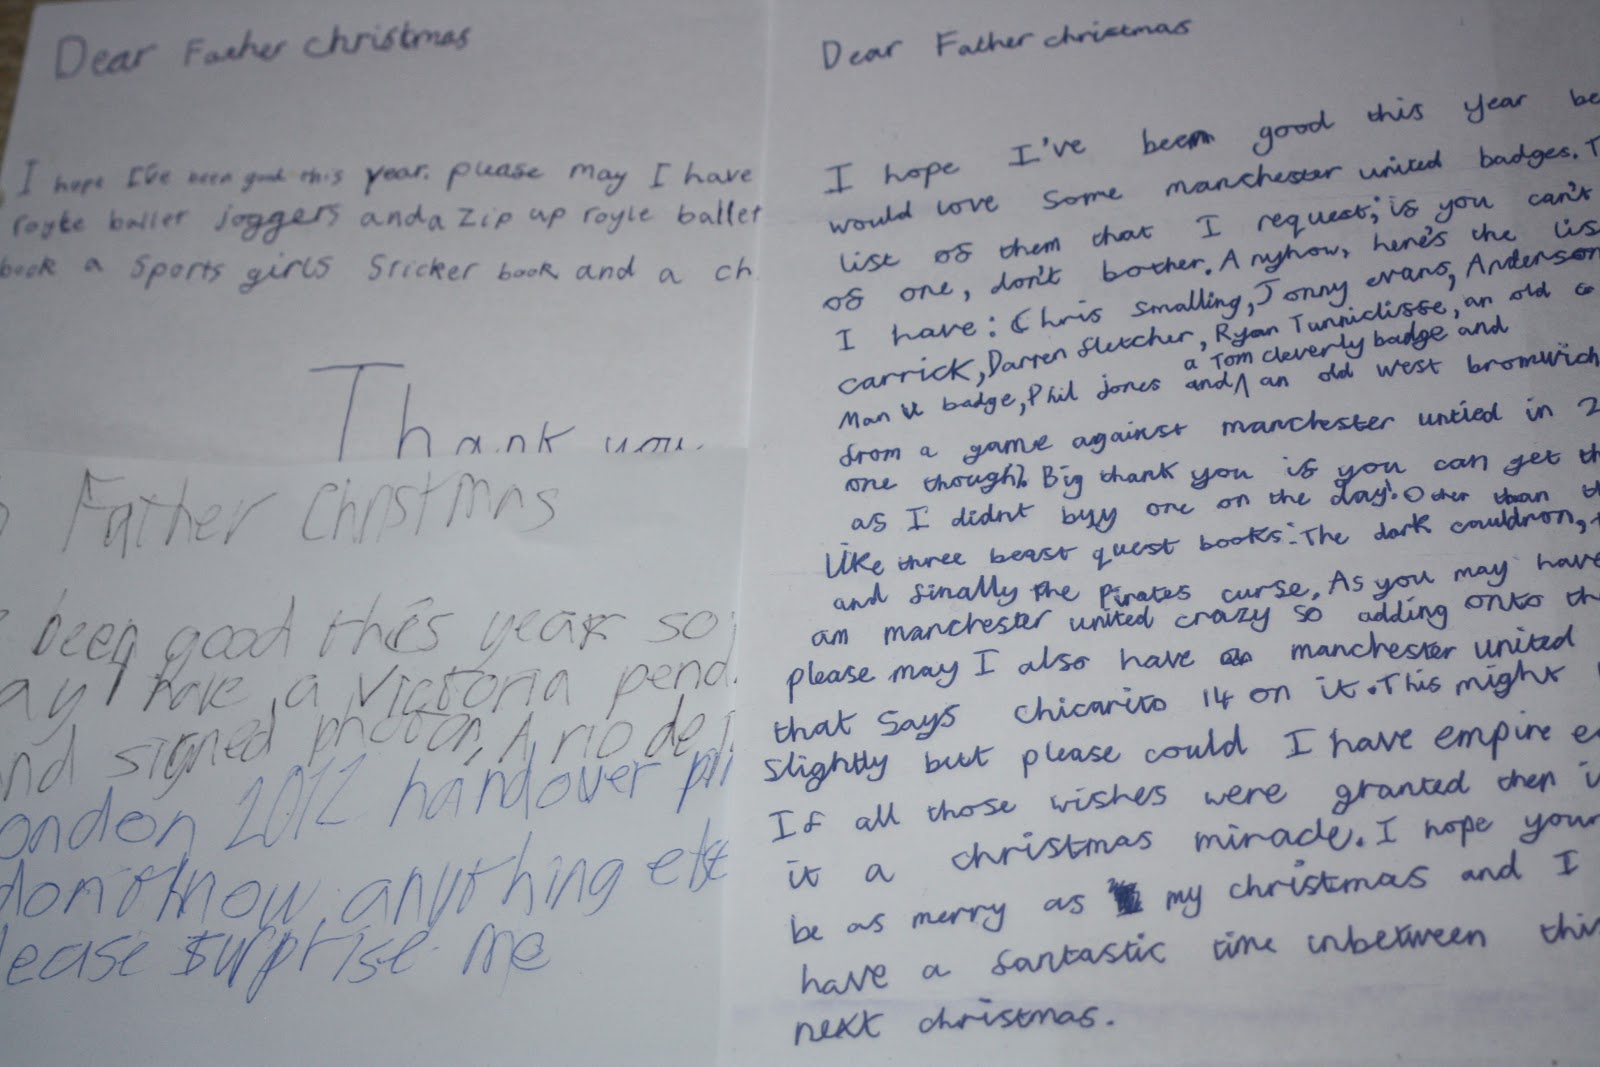 Dear Father christmas
I hope I've been good this year. please may I have
royle ballet joggers and a zip up royle ballet
book a Sports girls Sticker book and a ch
Thank you.
Father Christmas
been good this year so
I have a Victoria pend
and signed photo, A rio de
London 2012 handover
don't know anything else
please surprise me
Dear Father christmas
I hope I've been good this year be
would love some manchester united badges. T
list of them that I request; if you can't
of one, don't bother. Anyhow, here's the lis
I have: Chris Smalling, Jonny evans, Anderson
carrick, Darren fletcher, Ryan Tunnicliffe, an old
a Tom cleverly badge and
Man U badge, Phil jones and an old west bromwich
from a game against manchester untied in 2
one though). Big thank you if you can get th
as I didnt buy one on the day. Other than th
like three beast quest books: The dark cauldron,
and finally the Pirates curse. As you may have
am manchester united crazy so adding onto the
please may I also have manchester united
that says chicarito 14 on it. This might
slightly but please could I have empire ea
If all those wishes were granted then i
it a christmas miracle. I hope your
be as merry as my christmas and I
have a fantastic time inbetween this
next christmas.